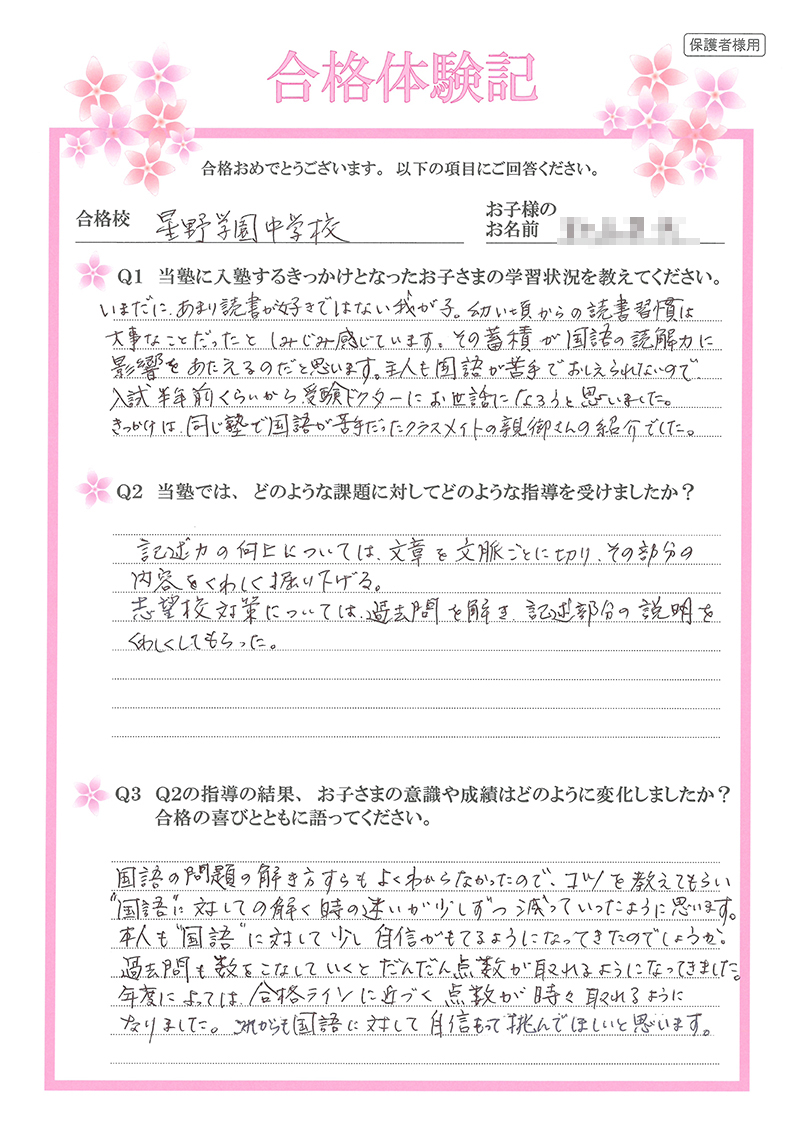 保護者様用
合格体験記
合格おめでとうございます。以下の項目にご回答ください。
合格校 星野学園中学校
お子様の
お名前
Q1 当塾に入塾するきっかけとなったお子さまの学習状況を教えてください。
いまだに、あまり読書が好きではない我が子。幼い頃からの読書習慣は
大事なことだったと しみじみ感じています。その蓄積が国語の読解力に
影響をあたえるのだと思います。主人も国語が苦手でおしえられないので、
入試半年前くらいから受験ドクターにお世話になろうと思いました。
きっかけは、同じ塾で国語が苦手だったクラスメイトの親御さんの紹介でした。
Q2 当塾では、どのような課題に対してどのような指導を受けましたか？
記述力の向上については、文章を文脈ごとに切り、その部分の
内容をくわしく掘り下げる。
志望校対策については、過去問を解き、記述部分の説明を
くわしくしてもらった。
Q3 Q2の指導の結果、お子さまの意識や成績はどのように変化しましたか？
合格の喜びとともに語ってください。
国語の問題の解き方すらもよくわからなかったので、コツを教えてもらい
"国語"に対しての解く時の迷いが少しずつ減っていったように思います。
本人も"国語"に対して少し自信がもてるようになってきたのでしょうか。
過去問も数をこなしていくとだんだん点数が取れるようになってきました。
年度によっては、合格ラインに近づく点数が時々取れるように
なりました。これからも国語に対して自信もって挑んでほしいと思います。